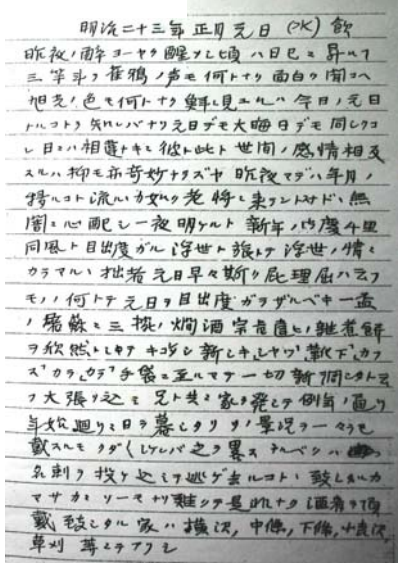 明治二十三年正月元日(水)飲
昨夜ノ酔ヨーヤク醒メシ頃ハ日已ニ昇ルて
三竿斗リ雀鴉ノ声モ何トナク面白ク聞コヘ
旭光ノ色モ何トナク鮮ニ見エルハ今日ハ元日
ナルコトヲ知レバナリ元日デモ大晦日デモ同シク
シ日ニハ相違ナキモ彼ト此ト世間ノ感情相反
スルハ抑モ亦奇妙ナラズヤ昨夜マデハ年月ノ
帰ルコト流ルヽカ如ク老将ニ来ラントサトド無
闇ニ心配シ一夜明ケルト新年ノ御慶千里
同風ト目出度ガル浮世ト旅トテ浮世ノ情ニ
カラマルヽ拙者元日早々斯ク屁理屈ハ云フ
モノヽ何トテ元日ヲ目出度ガラザルベキ一盃
ノ屠蘇ニ三椀ノ燗酒宗旨違ヒノ雑煮餅
ヲ欣然トシテ新シキシャツ靴下カフ
ズカラ手袋ニ至ルマデ一切新調シタト云
フ大張リ込ミ兄ト共ニ家ヲ発シテ例年ノ通リ
年始廻リニ日ヲ暮シタリ其ノ景況ヲ一々
載スルモクダクシケレバ之ヲ畧ス
名刺ヲ投ケ込ミテ逃ゲ去ルコトヽ致シタルカ
マサカニソーモナリ難クテ是非ナク酒肴ヲ頂
戴致シタル家ハ横沢,中條,下條,小長沢,
草刈等ニテアリシ